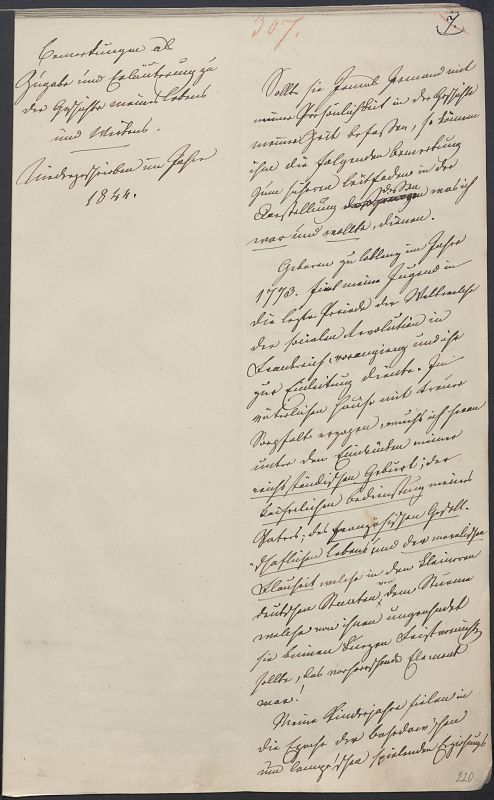 307.
7.
Bemerkungen als
Zugabe und Erläuterung zu
der Geschichte meines Lebens
und Wirkens.
Niedergeschrieben im Jahre
1844.
Sollte sie jemals Jemand mit
meiner Persönlichkeit in der Geschichte
meiner Zeit befassen, so können
ihm die folgenden Bemerkung
zum sicheren Leitfaden in der
Darstellung dessen was ich
war und wollte, dienen.
Geboren zu Coblenz im Jahre
1773. fiel meine Jugend in
die letzte Periode der Welt welche
der socialen Revolution in
Frankreich voranging und ihr
zur Einleitung diente. Im
väterlichen Hause mit treuer
Sorgfalt erzogen, wuchs ich heran
unter den Eindrücken meiner
reichsständischen Geburt; der
kaiserlichen Bedienstung meines
Vaters; des französischen Gesell-
schaftlichen Lebens und der moralischen
Flauheit welche in den kleineren
deutschen Staaten vor dem Sturme
welche von ihnen ungeahndet
sie binnen kurzer Zeist vernichten
sollte, das vorherrschende Element
war!
Meine Kinderjahre fielen in
die Epoche der basedow'schen
und campe'schen spielenden Erziehungs
220